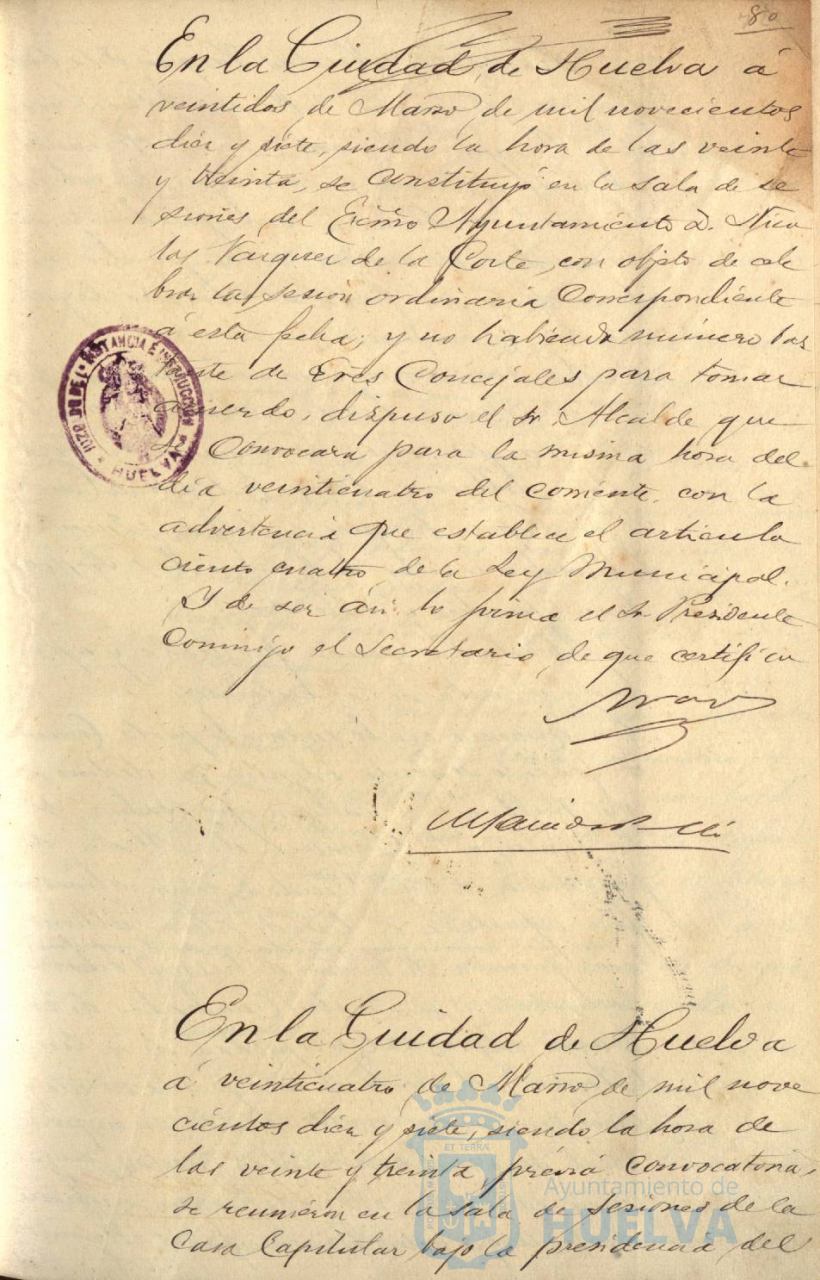 80
En la Ciudad de Huelva á
veintidos de Marzo de mil novecientos
diez y siete, siendo la hora de las veinte
y treinta, se constituyó en la sala de se
siones del Excmo Ayuntamiento D. Nico
las Vazquez de la Corte, con objeto de cele
brar la sesion ordinaria correspondiente
á esta fecha; y no habiendo número bas
tante de Sres Concejales para tomar
acuerdo, dispuso el Sr. Alcalde que
se convocara para la misma hora del
dia veinticuatro del corriente, con la
advertencia que establece el articulo
ciento cuatro de la Ley Municipal.
Y de ser asi lo firma el Sr Presidente
conmigo el Secretario, de que certifico
JUZGADO DE 1ª INSTANCIA E INSTRUCCIÓN
HUELVA
En la Ciudad de Huelva
á veinticuatro de Marzo de mil nove
cientos diez y siete, siendo la hora de
las veinte y treinta, prévia convocatoria,
se reunieron en la sala de sesiones de la
Casa Capitular bajo la presidencia del
ET TERRA
Ayuntamiento de
HUELVA